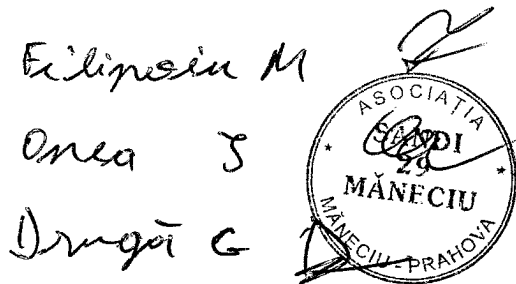 Filipoiu M
Onea J
Drugă G
ASOCIAȚIA
SANDI
29
MĂNECIU
MĂNECIU - PRAHOVA